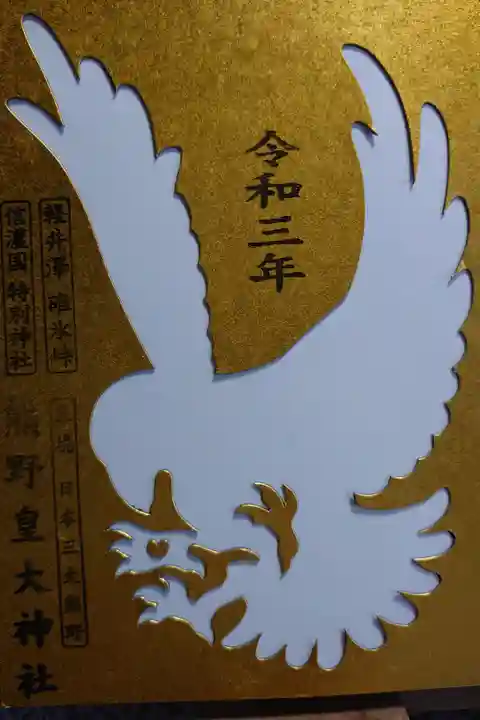 令和三年
軽井澤 碓氷峠
信濃国 特別神社
日本三大熊野
熊野皇大神社